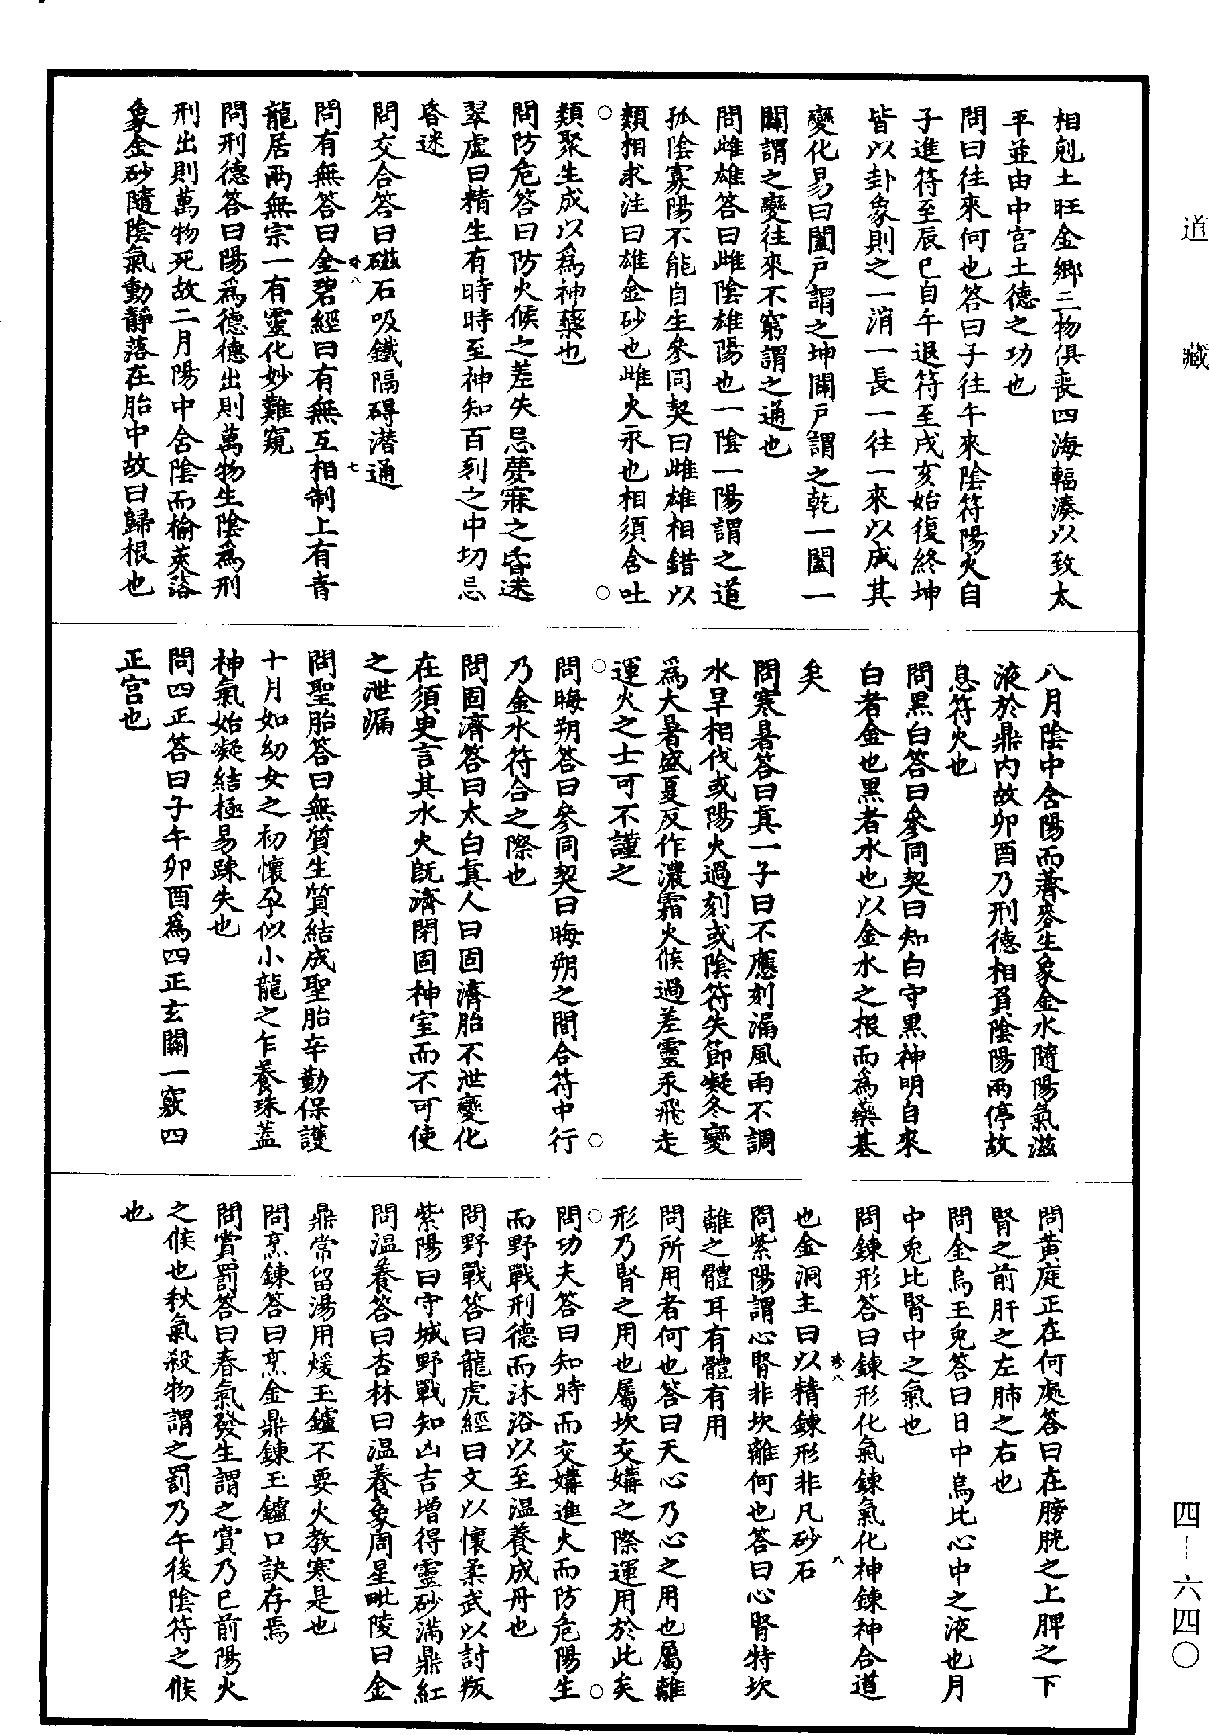 道藏
相剋土旺金鄉三物俱喪四海輻湊以致太
平並由中宮土德之功也
問曰往來何也答曰子往午來陰符陽火自
子進符至辰巳自午退符至戌亥始復終坤
皆以卦象則之一消一長一往一來以成其
變化易曰闔戶謂之坤闢戶謂之乾一闔一
闢謂之變往來不窮謂之通也
問雌雄答曰雌陰雄陽也一陰一陽謂之道
孤陰寡陽不能自生參同契曰雌雄相錯以
類相求注曰雄金砂也雌火汞也相須含吐
類聚生成以為神藥也
問防危答曰防火候之差失忌夢寐之昏迷
翠虛曰精生有時時至神知百刻之中切忌
昏迷
問交合答曰磁石吸鐵隔碍潛通
問有無答曰金碧經曰有無互相制上有青
龍居兩無宗一有靈化妙難窺
問刑德答曰陽為德德出則萬物生陰為刑
刑出則萬物死故二月陽中含陰而榆莢落
象金砂隨陰氣動靜落在胎中故曰歸根也
八月陰中含陽而薺麥生象金水隨陽氣滋
液於鼎內故卯酉乃刑德相負陰陽兩停故
息符火也
問黑白答曰參同契曰知白守黑神明自來
白者金也黑者水也以金水之根而為藥基
矣
問寒暑答曰真一子曰不應刻漏風雨不調
水旱相伐或陽火過刻或陰符失節凝冬變
為大暑盛夏反作濃霜火候過差靈汞飛走
運火之士可不謹之
問晦朔答曰參同契曰晦朔之間合符中行
乃金水符合之際也
問固濟答曰太白真人曰固濟胎不泄變化
在須臾言其水火既濟閉固神室而不可使
之泄漏
問聖胎答曰無質生質結成聖胎辛勤保護
十月如幼女之初懷孕似小龍之乍養珠蓋
神氣始凝結極易疎失也
問四正答曰子午卯酉為四正玄關一竅四
正宮也
問黃庭正在何處答曰在膀胱之上脾之下
腎之前肝之左肺之右也
問金烏玉兔答曰日中烏比心中之液也月
中兔比腎中之氣也
問鍊形答曰鍊形化氣鍊氣化神鍊神合道
也金洞主曰以精鍊形非凡砂石
問紫陽謂心腎非坎離何也答曰心腎特坎
離之體耳有體有用
問所用者何也答曰天心乃心之用也屬離
形乃腎之用也屬坎交媾之際運用於此矣
問功夫答曰知時而交媾進火而防危陽生
而野戰刑德而沐浴以至温養成丹也
問野戰答曰龍虎經曰文以懷柔武以討叛
紫陽曰守城野戰知凶吉增得靈砂滿鼎紅
問温養答曰杏林曰温養象周星毗陵曰金
鼎常留湯用煖玉鑪不要火教寒是也
問烹鍊答曰烹金鼎鍊玉鑪口訣存焉
問賞罰答曰春氣發生謂之賞乃巳前陽火
之候也秋氣殺物謂之罰乃午後陰符之候
也
四-六四〇